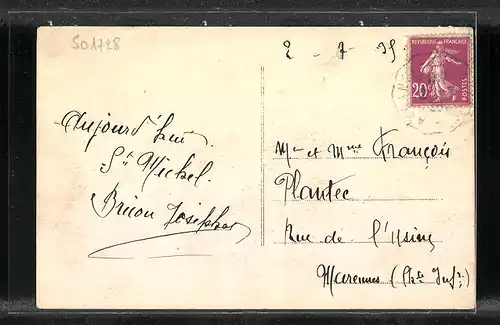 501728
2 - 7 - 35
REPUBLIQUE FRANÇAISE
20c
POSTES
Aujourd'hui
St Michel.
Brion Josephe
Mr et Mme François
Plantec
Rue de l'Usine
Marennes (Chte Infr.)